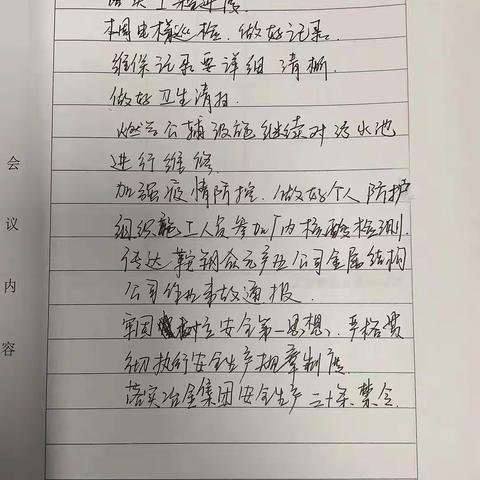 落实工程进度
本周电梯巡检.做好记录.
维保记录要详细清晰.
做好卫生清扫.
燃气公辅设施继续对污水池
进行维修.
加强疫情防控.做好个人防护
组织施工人员参加厂内核酸检测.
传达鞍钢众元产业公司金属结构
公司作业事故通报.
牢固树立安全第一思想、严格贯
彻执行安全生产规章制度.
落实冶金集团安全生产二十条禁令.
会议内容